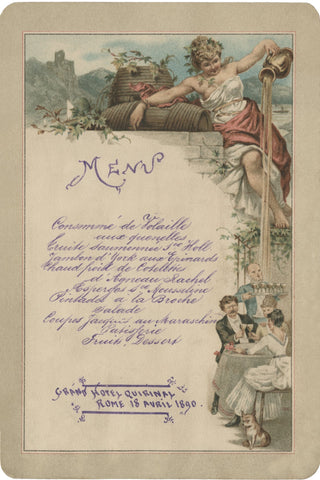 MENU
Consommé de Volaille
aux quenelles
Truite saumonnée sce Holl.
Jambon d'York aux Epinards
Chaud froid de Cotelettes
d'Agneau Rachel
Asperges sce Mousseline
Pintades a la Broche
Salade
Coupes Jacques au Maraschin
Patisserie
Fruits Dessert
GRAND HOTEL QUIRINAL
ROME 18 AVRIL 1890.